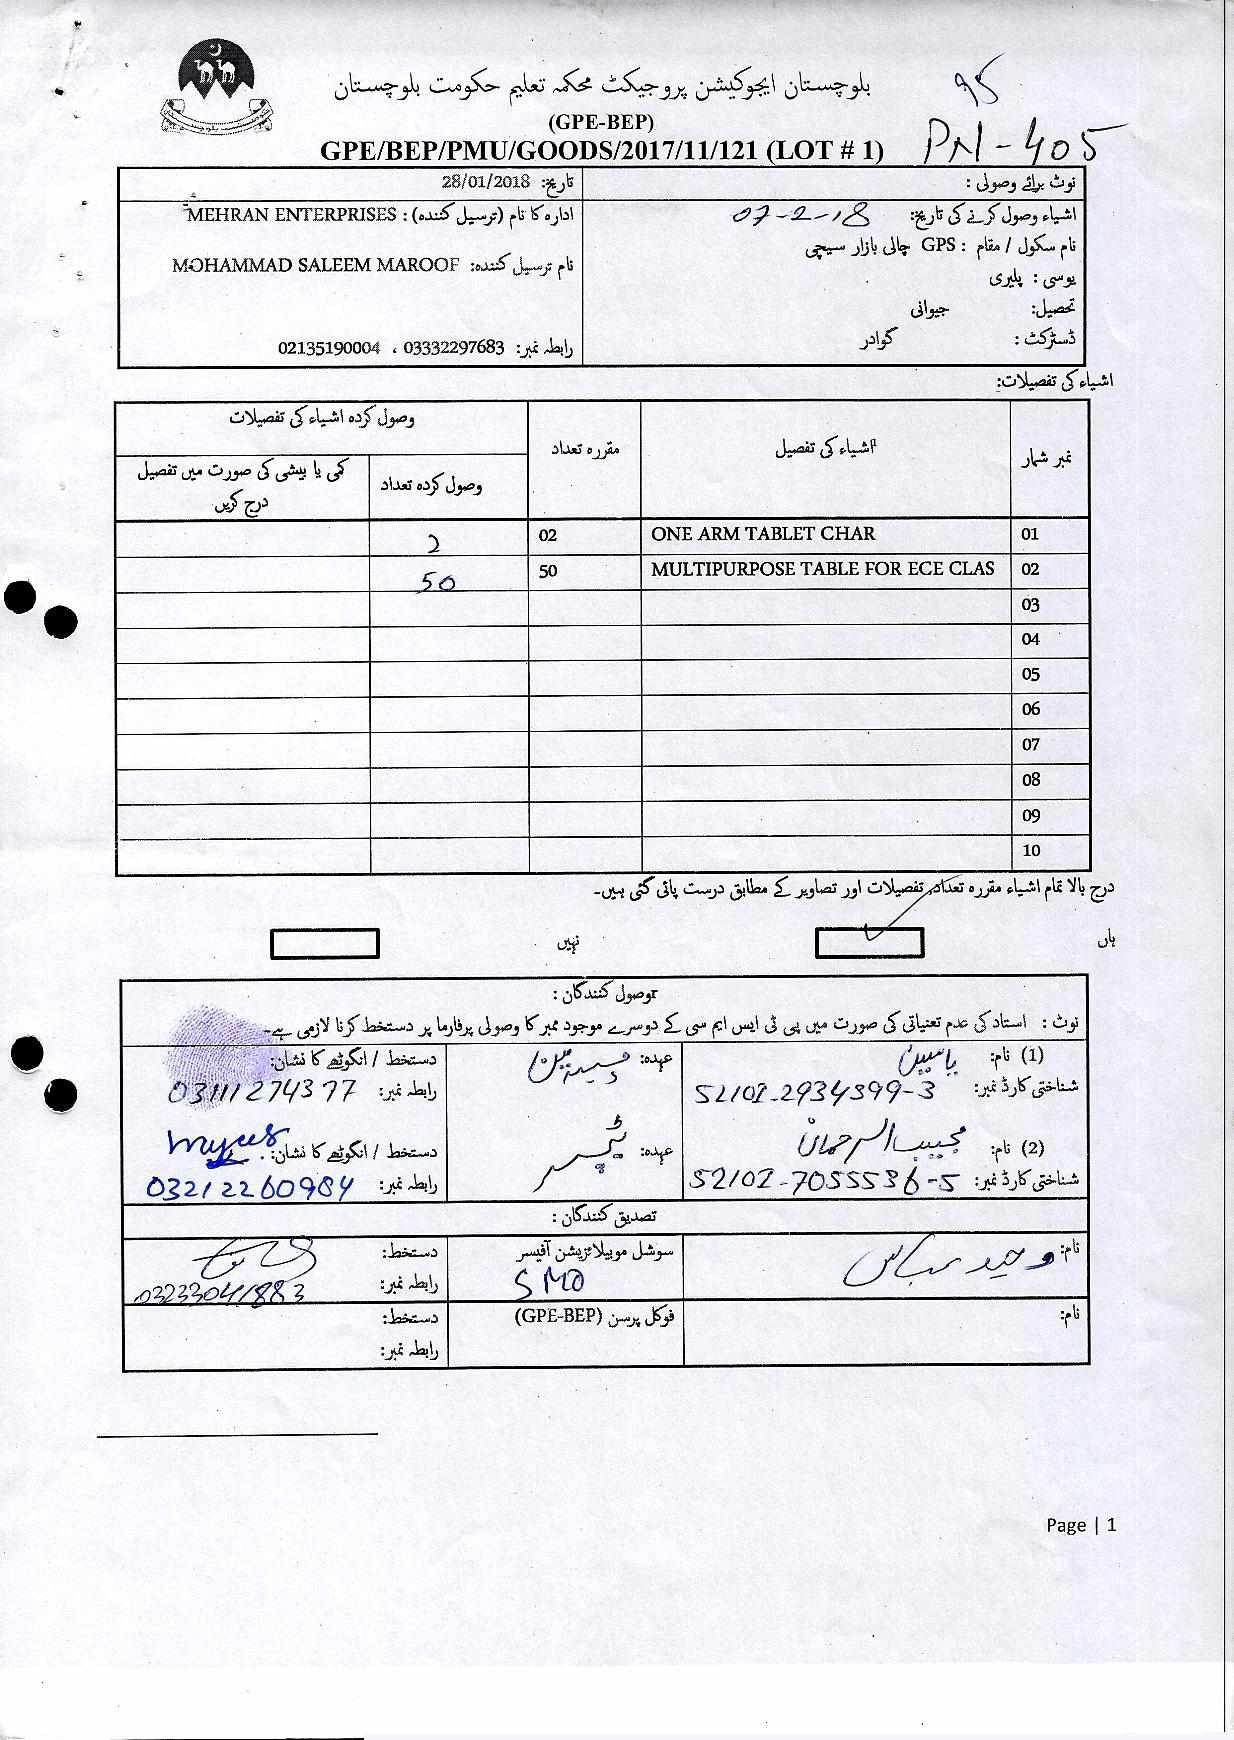 بلوچستان ایجوکیشن پروجیکٹ محکمہ تعلیم حکومت بلوچستان
95
(GPE-BEP)
GPE/BEP/PMU/GOODS/2017/11/121 (LOT # 1)
PN-405
نوٹ برائے وصولی :
تاریخ: 28/01/2018
اشیاء وصول کرنے کی تاریخ: 07-2-18
ادارہ کا نام (ترسیل کنندہ) : MEHRAN ENTERPRISES
نام سکول / مقام : GPS چالی بازار سیچی
نام ترسیل کنندہ: MOHAMMAD SALEEM MAROOF
یوسی : پلیری
تحصیل: جیوانی
ڈسٹرکٹ : گوادر
رابطہ نمبر: 03332297683 ، 02135190004
اشیاء کی تفصیلات:
نمبر شمار
اشیاء کی تفصیل
مقررہ تعداد
وصول کردہ اشیاء کی تفصیلات
وصول کردہ تعداد
کمی یا بیشی کی صورت میں تفصیل درج کریں
01 ONE ARM TABLET CHAR 02 2
02 MULTIPURPOSE TABLE FOR ECE CLAS 50 50
03
04
05
06
07
08
09
10
درج بالا تمام اشیاء مقررہ تعداد، تفصیلات اور تصاویر کے مطابق درست پائی گئی ہیں۔
ہاں
نہیں
وصول کنندگان :
نوٹ : استاد کی عدم تعنیاتی کی صورت میں پی ٹی ایس ایم سی کے دوسرے موجود ممبر کا وصولی پرفارما پر دستخط کرنا لازمی ہے۔
(1) نام: یاسین
عہدہ:
دستخط / انگوٹھے کا نشان:
شناختی کارڈ نمبر: 52102-2934399-3
رابطہ نمبر: 03111274377
(2) نام: مجیب الرحمان
عہدہ: ٹیچر
دستخط / انگوٹھے کا نشان:
شناختی کارڈ نمبر: 52102-7055536-5
رابطہ نمبر: 03212260984
تصدیق کنندگان :
نام: وحید عباس
سوشل موبیلائزیشن آفیسر
SMO
دستخط:
رابطہ نمبر: 03233041883
نام:
فوکل پرسن (GPE-BEP)
دستخط:
رابطہ نمبر:
Page | 1